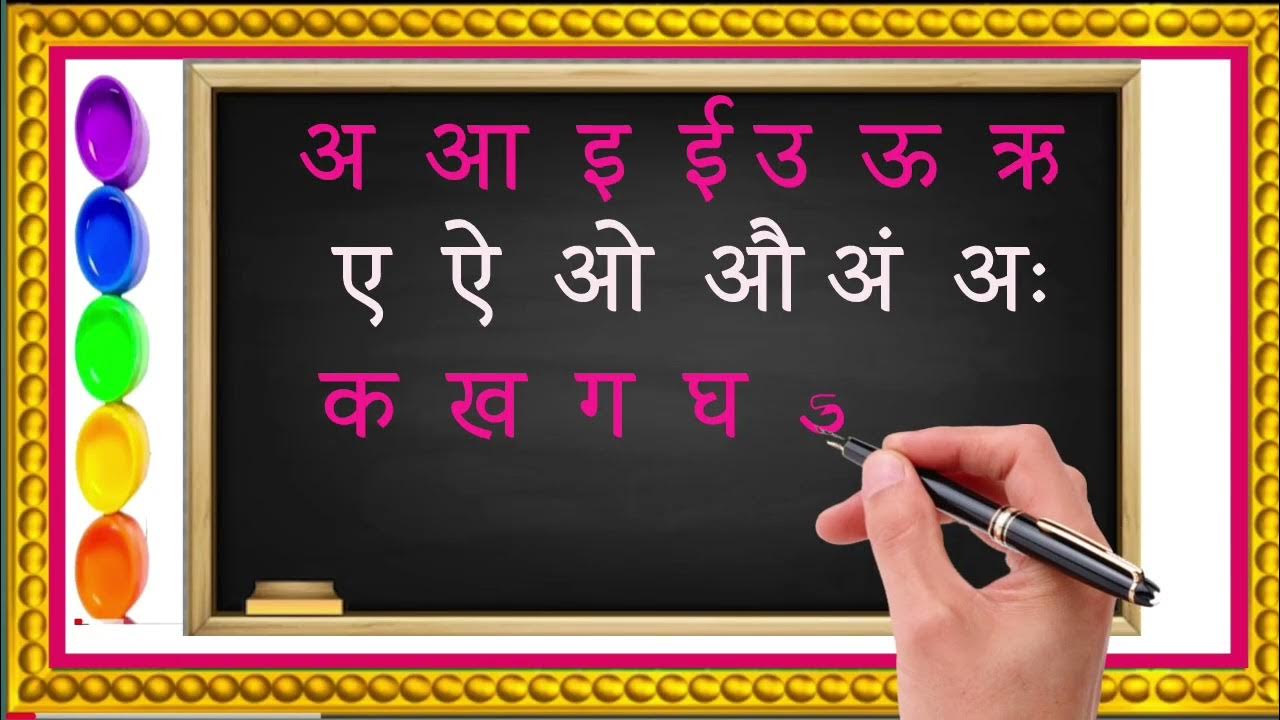 अ आ इ ई उ ऊ ऋ
ए ऐ ओ औ अं अः
क ख ग घ